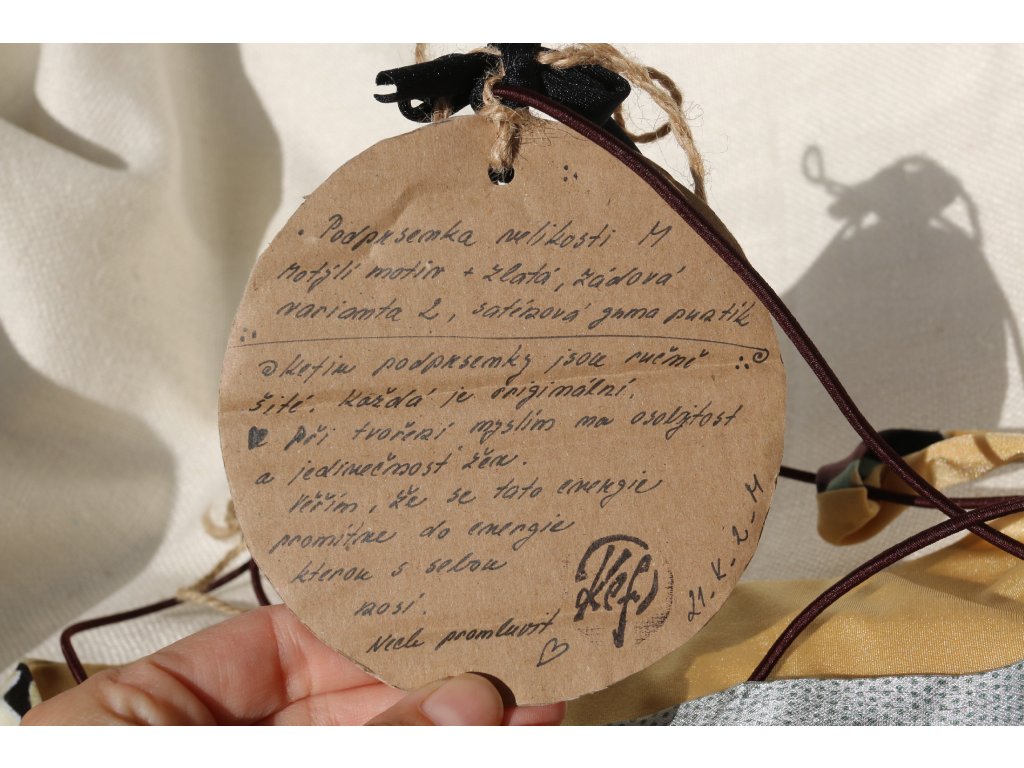 • Podprsenka velikosti M
Motýlí motiv + zlatá, zádová
varianta 2, saténová guma puntík
Kefiny podprsenky jsou ručně
šité. Každá je originální.
♥ při tvoření myslím na osobitost
a jedinečnost žen.
Věřím, že se tato energie
promítne do energie
kterou s sebou
nosí.
Nech promluvit
♡
Kefi
21. K. - 2 - M